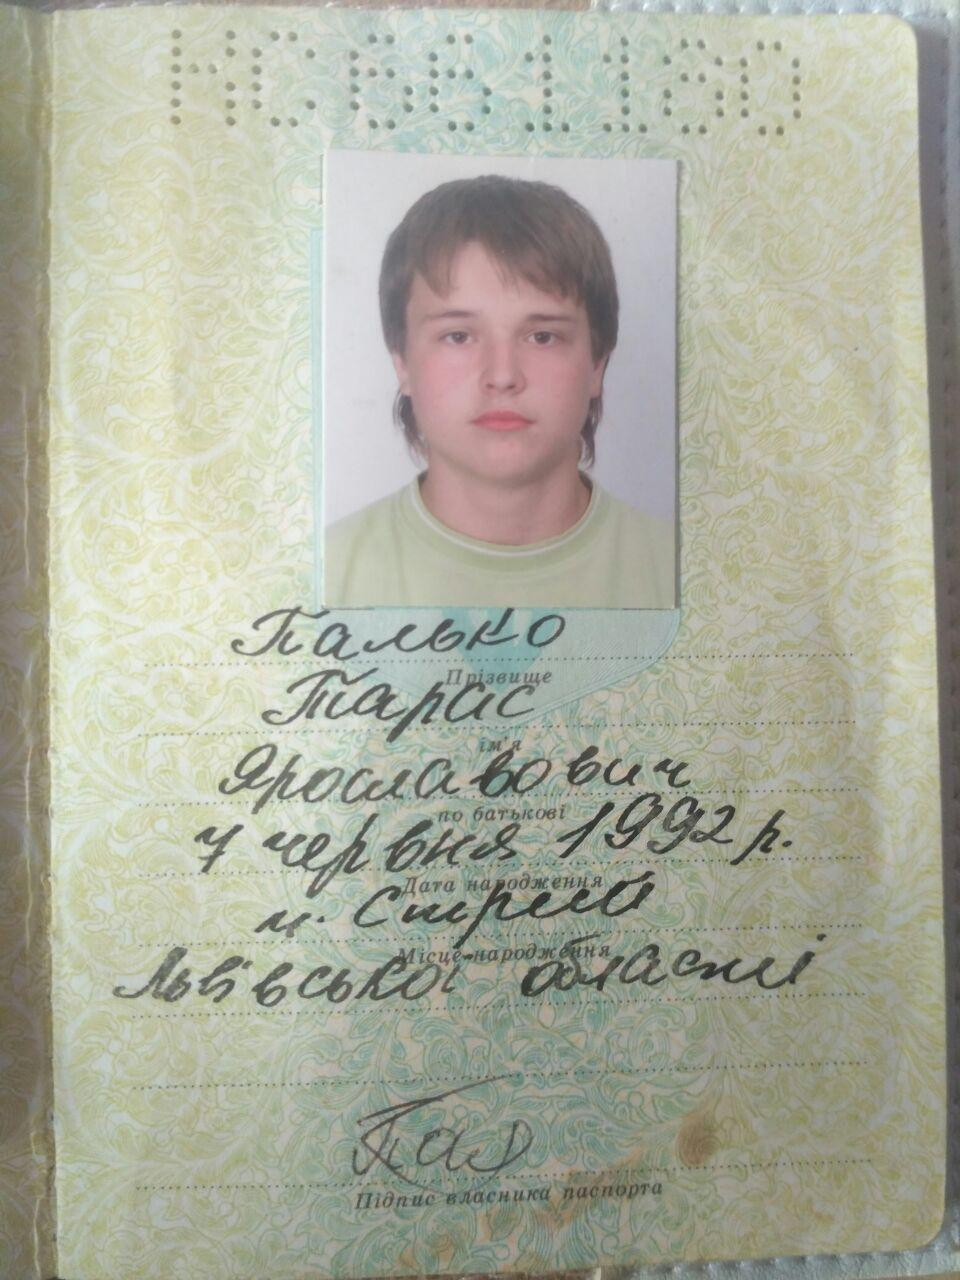 Палько
Прізвище
Тарас
ім'я
Ярославович
по батькові
7 червня 1992 р.
Дата народження
м. Стрий
Місце народження
Львівської області
Підпис власника паспорта